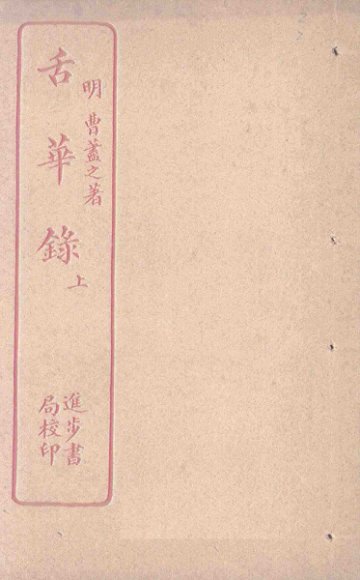 明 曹蓋之著
舌華錄 上
進步書
局校印